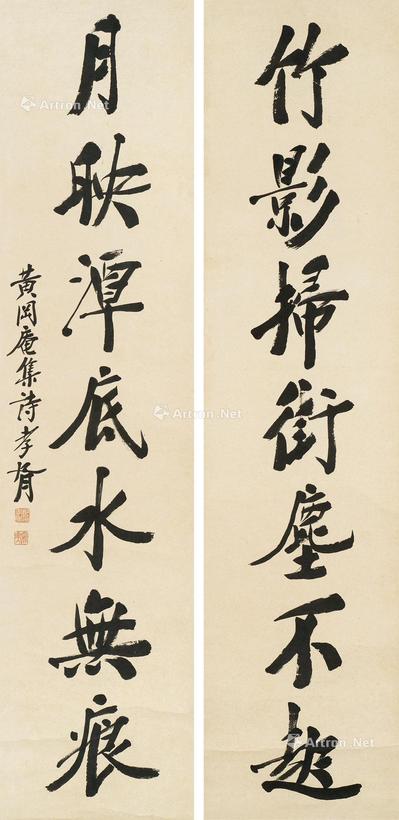 竹影掃街塵不起
月映潭底水無痕
黃岡庵集詩孝胥
Artron.Net
Artron.Net
Artron.Net